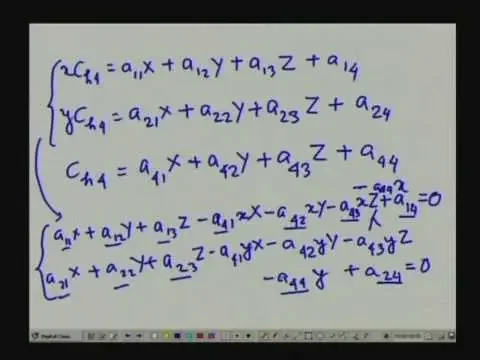 xC_h4 = a_11 X + a_12 Y + a_13 Z + a_14
yC_h4 = a_21 X + a_22 Y + a_23 Z + a_24
C_h4 = a_41 X + a_42 Y + a_43 Z + a_44
- a_44 x
a_11 X + a_12 Y + a_13 Z - a_41 xX - a_42 xY - a_43 xZ + a_14 = 0
a_21 X + a_22 Y + a_23 Z - a_41 yX - a_42 yY - a_43 yZ
- a_44 y + a_24 = 0